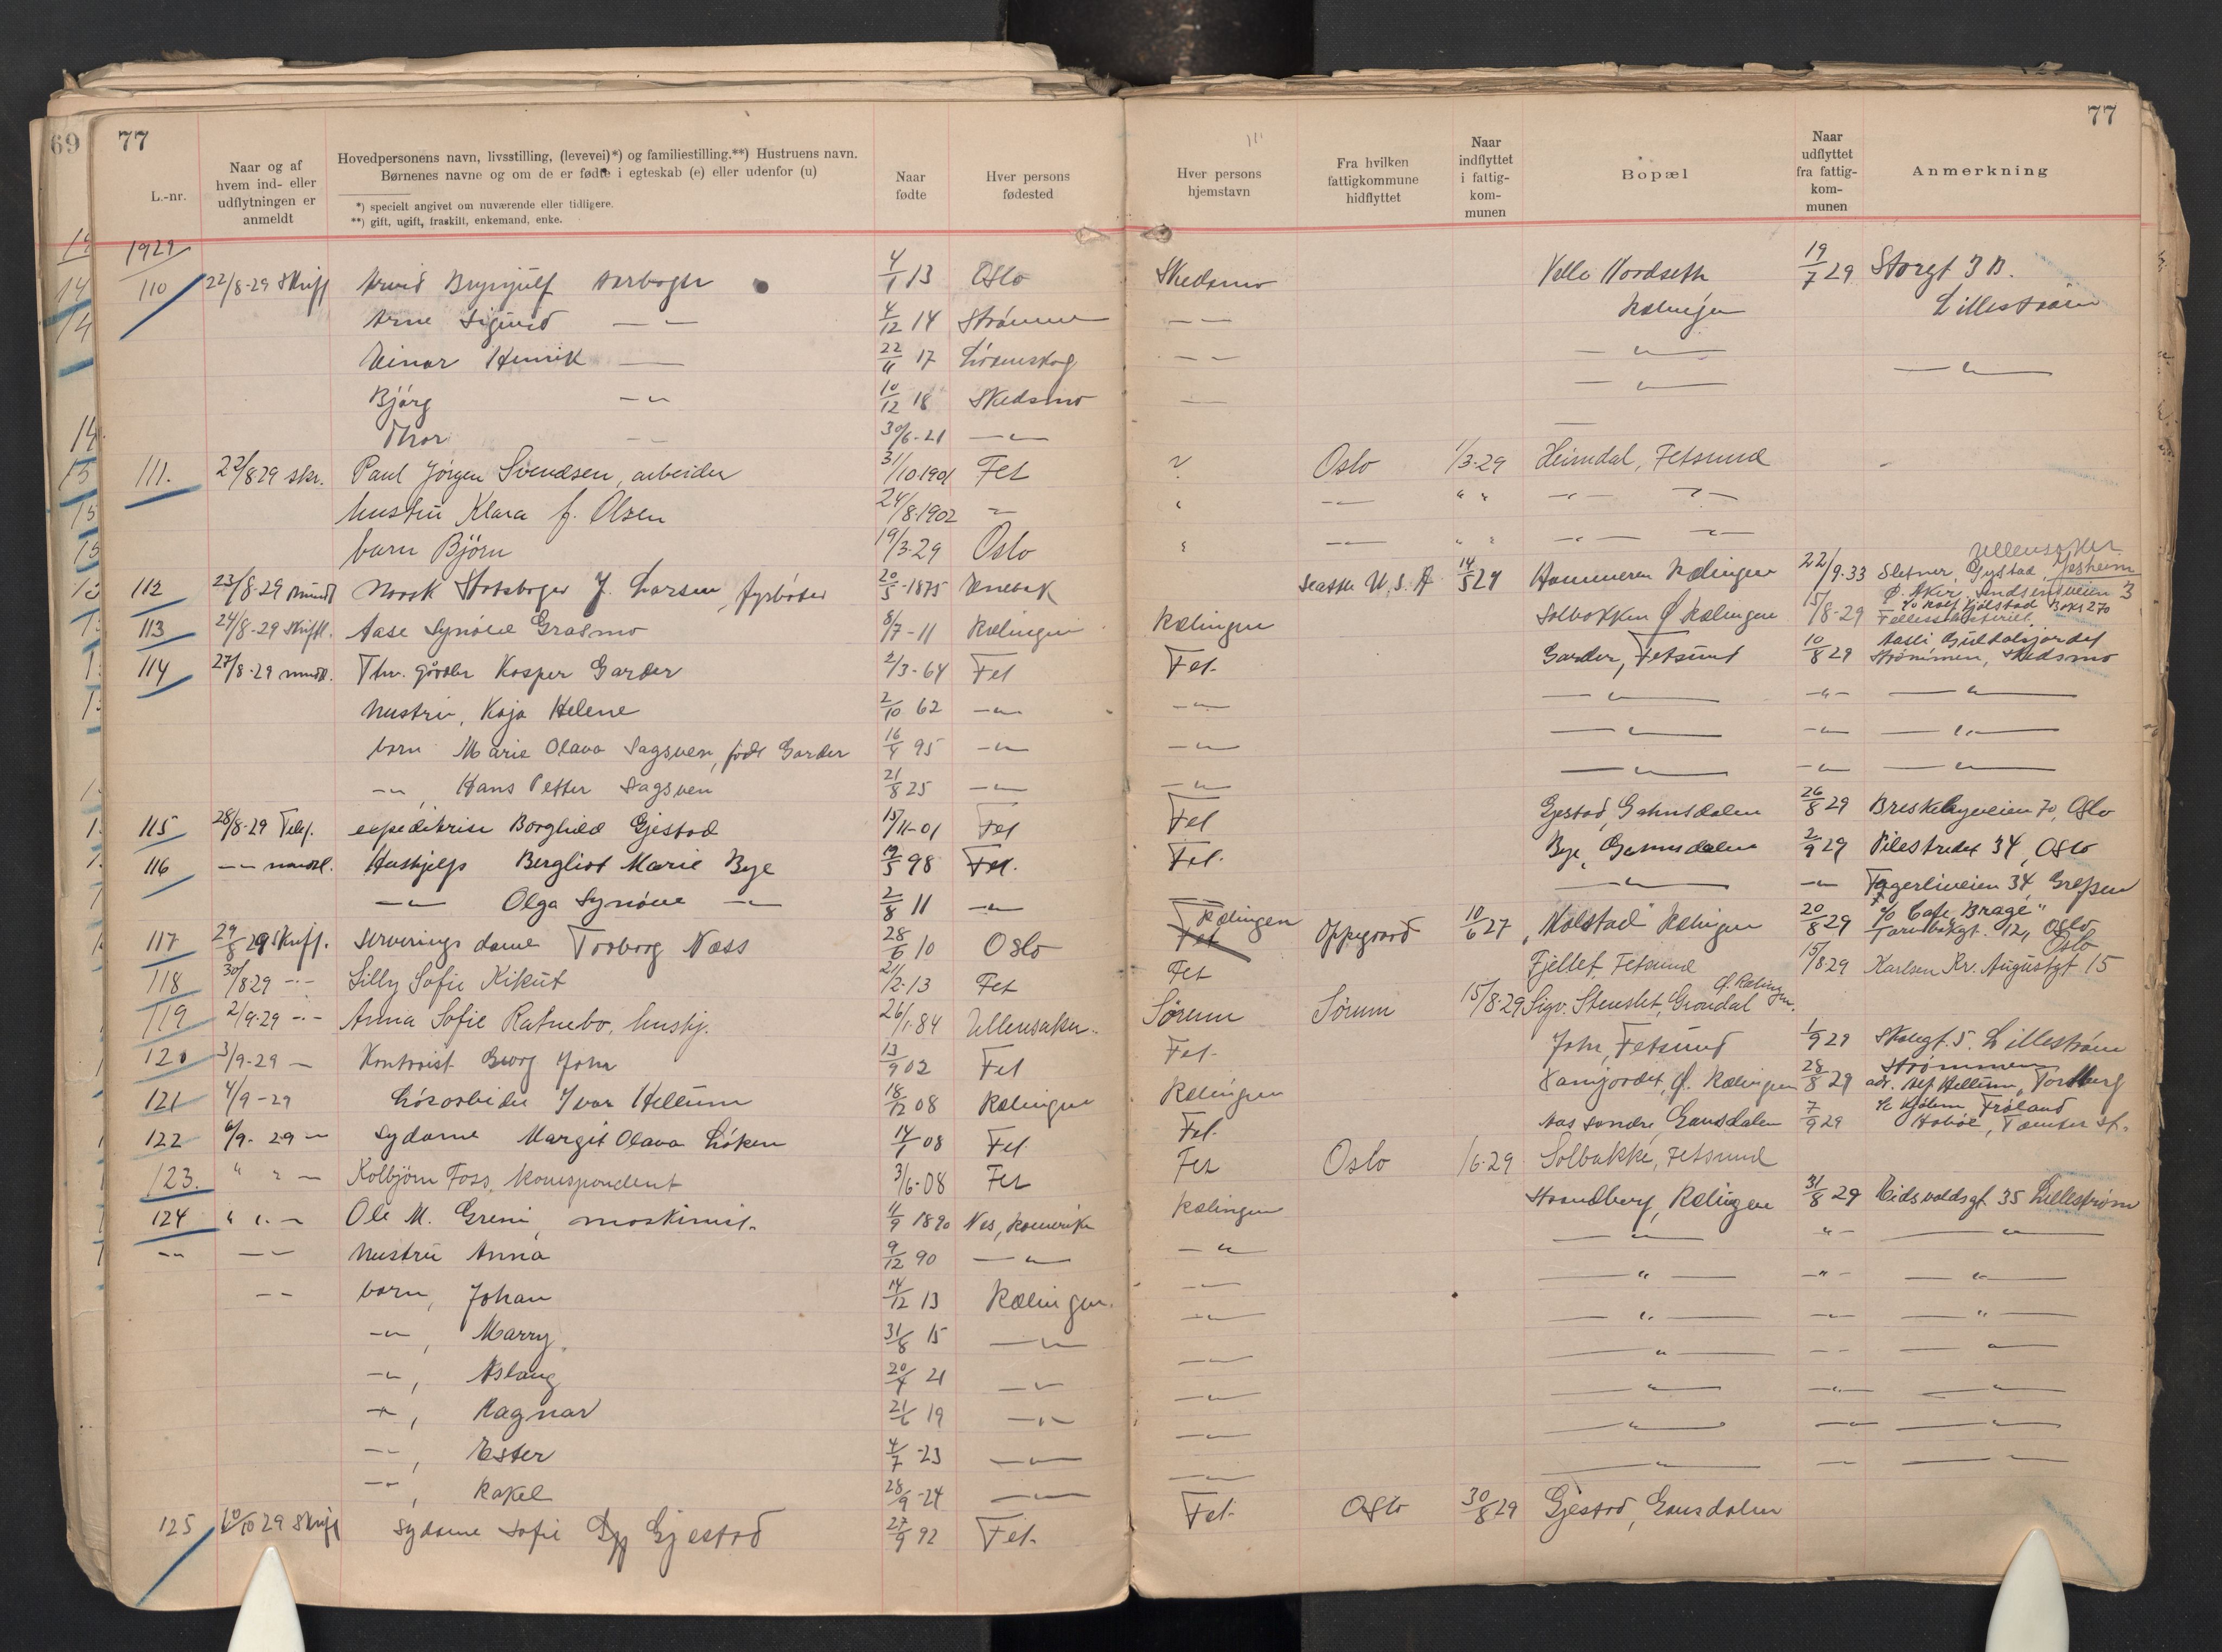 69 77
77
L.-nr.
Naar og af hvem ind- eller udflytningen er anmeldt
Hovedpersonens navn, livsstilling, (levevei)*) og familiestilling.**) Hustruens navn.
Børnenes navne og om de er fødte i egteskab (e) eller udenfor (u)
*) specielt angivet om nuværende eller tidligere.
**) gift, ugift, fraskilt, enkemand, enke.
Naar fødte
Hver persons fødested
Hver persons hjemstavn
Fra hvilken fattigkommune hidflyttet
Naar indflyttet i fattig-kom-munen
Bopæl
Naar udflyttet fra fattig-kom-munen
Anmerkning
1929
110 22/8-29 Skriftl Arvid Brynjulf 4/1 13 Oslo Skedsmo Nordseth 19/7 29 Storgt 3 B.
Arne Sigurd — " — 4/12 14 Strømmen — " — Rælingen Lillestrøm
Einar Henrik — 22/11 17 Lørenskog — " — — " —
Bjørg — " — 10/12 18 Skedsmo — — " — — " —
Thor — " — 30/6-21 — " —
111. 22/8 29 skr. Paul Jørgen Svendsen, arbeider 31/10 1901 Fet ? Oslo 1/3-29 Heimdal, Fetsund
hustru Klara f. Olsen 24/8-1902 — " — " — " — " " — " —
barn Björn 19/3-29 Oslo " — " — " " — " —
112 23/8-29 mundt Norsk Statsborger J. Larsen, fyrbøter 20/5-1875 Enebak Seattle U.S.A 14/5 29 Hammeren Rælingen 22/9-33 Sletner, Gystad, Jessheim
Ullensaker
113 24/8-29 Skriftl. Aase Synöve Grasmo 8/7-11 Rælingen Rælingen Solbakken Ø Rælingen 15/8-29 Ø. Aker. 3
Boks 270
114 27/8-29 mundl. Fhv. Kasper Garder 2/3-64 Fet Fet. Garder, Fetsund 10/8 29 Strömmen, Skedsmo
hustru, Kaja Helene 2/10 62 — " — — " — — " — — " — — " —
barn Marie Olava Sagsveen, født Garder 16/4 95 — " — — " — — " — — " — — " —
— " — , Hans Petter Sagsveen 21/8 25 — " — — " — — " — — " — — " —
115 28/8-29 Telef. expeditrise Borghild Gjestad 15/11-01 Fet Fet Gjestad, Gansdalen 26/8 29 Breskebyveien 70, Oslo
116 — " — mundl. Hushjelp Bergliot Marie Bye 19/5 98 Fet. Fet. Bye, Gansdalen 2/9 29 Pilestredet 34, Oslo
— " — Olga Synöve — " — 2/8 11 — " — — " — — " — Fagerliveien 34, Grefsen
117 29/8 29 Skriftl. Serveringsdame Torborg Næss 28/6 10 Oslo Rælingen Fet Oppegaard 10/6 27 "Molstad" Rælingen 20/8 29 c/o Cafe "Brage"
12, Oslo
118 30/8 29 -"- Lilly Sofie Kikut 21/2-13 Fet Fet Fjellet, Fetsund 15/8-29 Karlsen Kr. Augustgt 15 Oslo
119 2/9-29 -"- Anna Sofie Ratnebo, hushj. 26/1-84 Ullensaker Sørum Sørum 15/8-29 Sigv. Stenslet, Grøndal Ø. Rælingen.
120 3/9-29 — Kontorist Georg Johr 13/9 02 Fet Fet. Johr, Fetsund 1/9 29 Skougt. 5. Lillestrøm
121 4/9-29 Løsarbeider Ivar Hellum 18/12 08 Rælingen Rælingen Ø. Rælingen 28/8 29 Strømmen
adr. Alf Hellum, Torsberg
122 6/9-29 — Sydame Margit Olava Løken 14/1 08 Fet Fet. Aas søndre, Gansdalen 7/9 29 Frøland
Hobøl, Tomter st.
123. " " — Kolbjörn Foss, korrespondent 3/6-08 Fet Fet Oslo 1/6-29 Solbakke, Fetsund
124 " " — Ole M. Greni, maskinist. 11/9 1890 Nes, Romerike Rælingen Strandberg, Rælingen 31/8 29 Eidsvoldsgt 35 Lillestrøm
— " — — " — hustru Anna 9/12 90 — " — — " — — " — " — — " —
— " — barn, Johan 14/12 13 Rælingen. — " — — " — — " — — " —
— " —, Marry 31/8 15 — " — — " — — " — — " — — " —
— " —, Aslaug 20/4 21 — " — — " — — " — — " — — " —
— " —, Ragnar 21/6 19 — " — — " — — " — — " — — " —
— " —, Ester 4/7-23 — " — — " — — " — — " — — " —
— " —, Rakel 28/9-24 — " — — " — — " — — " — — " —
125 10/10 29 Skriftl Sydame Sofie Gjestad 27/9 92 Fet. Fet. Oslo 30/8 29 Gjestad, Gansdalen